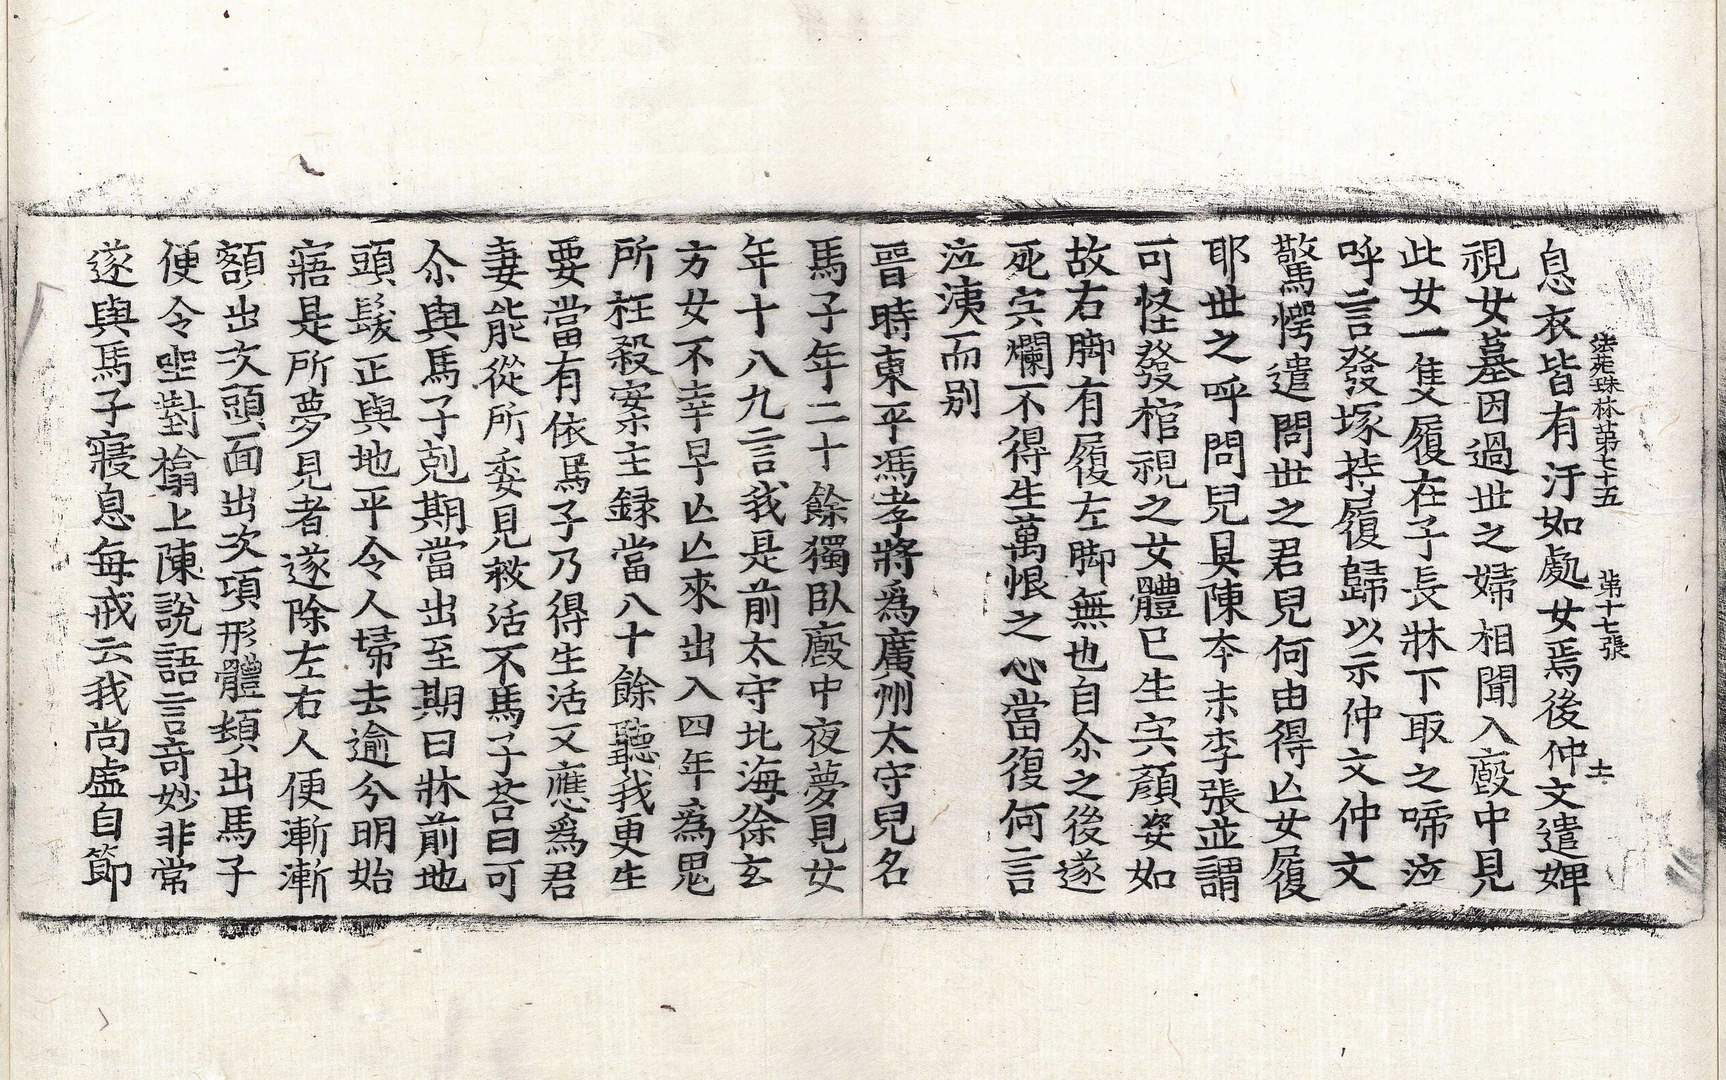 息衣皆有汙如處女焉後仲文遣婢
法苑珠林第七十五 第十七張
視女墓因過世之婦相聞入廄中見
此女一隻履在子長牀下取之啼泣
呼言發塚持履歸以示仲文仲文
驚愕遣問世之君兒何由得亾女履
耶世之呼問兒具陳夲末李張並謂
可怪發棺視之女體已生宍顏姿如
故右脚有履左脚無也自尒之後遂
死宍爛不得生萬恨之心當復何言
泣洟而别
晉時東平馮孝將爲廣州太守兒名
馬子年二十餘獨臥廄中夜夢見女
年十八九言我是前太守北海徐玄
方女不幸早亾亾來出入四年爲鬼
所枉殺案主録當八十餘聽我更生
要當有依馬子乃得生活又應爲君
妻能從所委見救活不馬子荅曰可
尒與馬子剋期當出至期日牀前地
頭髮正與地平令人掃去逾分明始
寤是所夢見者遂除左右人便漸漸
額出次頭面出次項形體頓出馬子
便令坐對榻上陳說語言奇妙非常
遂與馬子寢息每戒云我尚虛自節